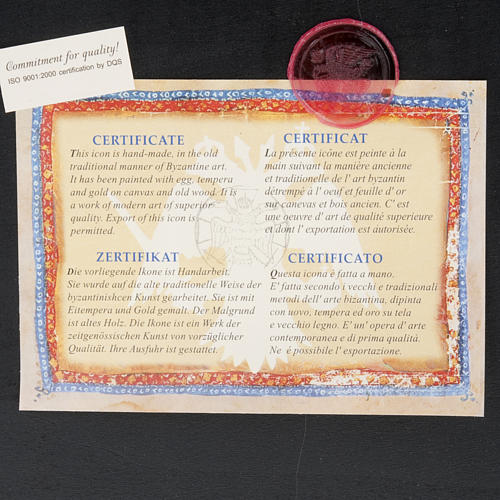 Commitment for quality!
ISO 9001:2000 certification by DQS
CERTIFICATE
This icon is hand-made, in the old
traditional manner of Byzantine art.
It has been painted with egg, tempera
and gold on canvas and old wood. It is
a work of modern art of superior
quality. Export of this icon is
permitted.
CERTIFICAT
La présente icône est peinte à la
main suivant la manière ancienne
et traditionelle de l' art byzantin
détrempé à l' oeuf et feuille d' or
sur canevas et bois ancien. C' est
une oeuvre d' art de qualité superieure
et dont l' exportation est autorisée.
ZERTIFIKAT
Die vorliegende Ikone ist Handarbeit.
Sie wurde auf die alte traditionelle Weise der
byzantinishcen Kunst gearbeitet. Sie ist mit
Eitempera und Gold gemalt. Der Malgrund
ist altes Holz. Die Ikone ist ein Werk der
zeitgenössischen Kunst von vorzüglicher
Qualität. Ihre Ausfuhr ist gestattet.
CERTIFICATO
Questa icona è fatta a mano.
E' fatta secondo i vecchi e tradizionali
metodi dell' arte bizantina, dipinta
con uovo, tempera ed oro su tela
e vecchio legno. E' un' opera d' arte
contemporanea e di prima qualità.
Ne é possibile l' esportazione.